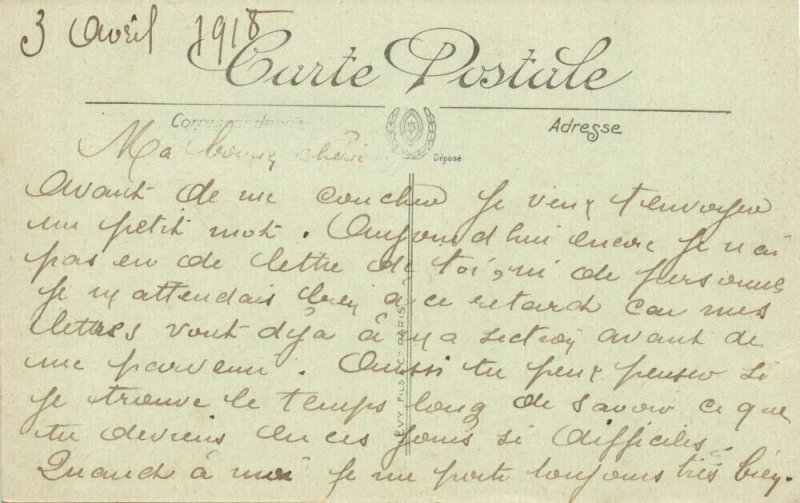 3 Avril 1918
Carte Postale
Correspondance
Adresse
Déposé
Ma bonne chérie
avant de me coucher je veux t'envoyer
un petit mot. Aujourd'hui encore je n'ai
pas eu de lettre de toi, ni de personne
je m'attendais bien à ce retard car mes
lettres vont déjà à ma section avant de
me parvenir. Aussi tu peux penser si
je trouve le temps long de savoir ce que
tu deviens en ces jours si difficiles.
Quand à moi je me porte toujours très bien.
LEVY FILS & Cie PARIS